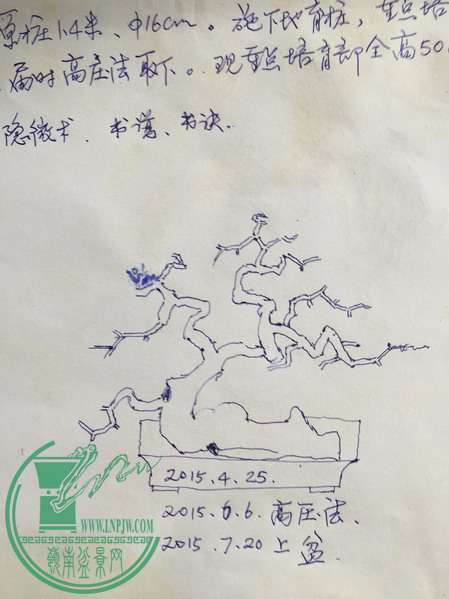 原桩1.4米、Φ16cm。施下地育桩，重点培
届时高压法取下。现重点培育部全高50
隐微术、书
2015.4.25.
2015.6.6.高压法.
2015.7.20上盆.
WWW.LNPJW.COM
嶺南盆景网